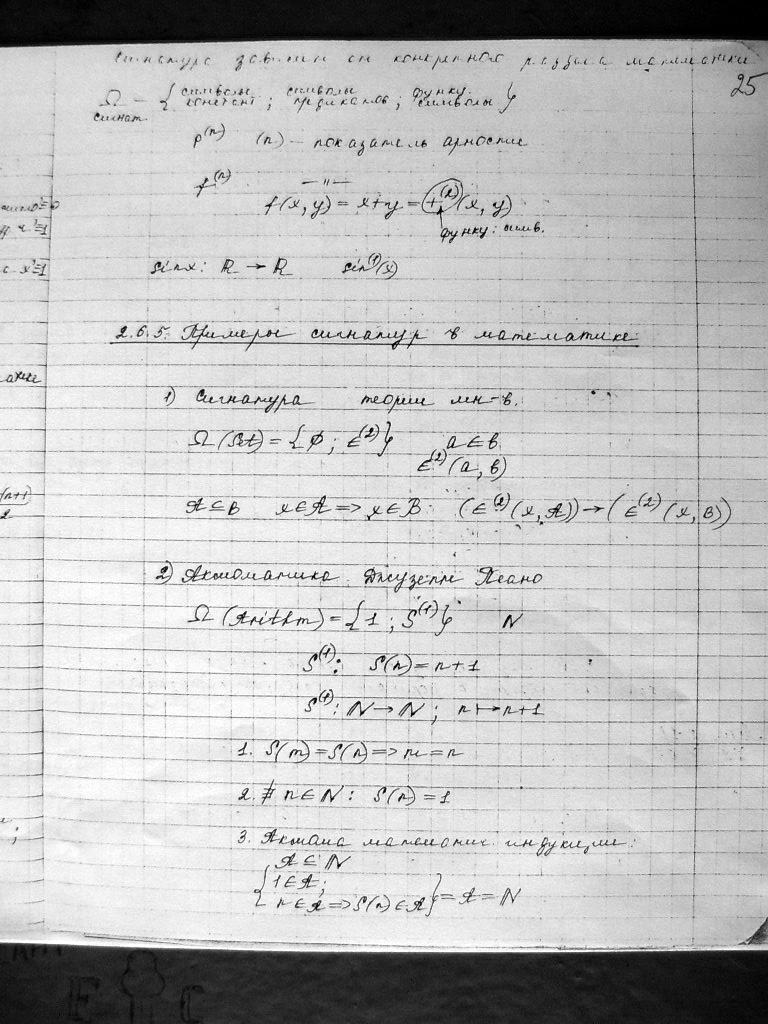 Сигнатура зависит от конкретного раздела математики
25
Ω — {символы констант; символы предикатов; функц. символы}
сигнат.
P⁽ⁿ⁾ (n) — показатель арности
f⁽ⁿ⁾ —〃—
f(x, y) = x+y = +⁽²⁾(x, y)
функц. симв.
sinx: ℝ → ℝ sin⁽¹⁾(x)
2.6.5. Примеры сигнатур в математике
1) Сигнатура теории мн-в.
Ω (Set) = {∅; ∈⁽²⁾} a ∈ b
∈⁽²⁾(a, b)
A ⊆ B x ∈ A => x ∈ B (∈⁽²⁾(x, A)) → (∈⁽²⁾(x, B))
2) Аксиоматика Джузеппе Пеано
Ω (Arithm) = {1; S⁽¹⁾} N
S⁽¹⁾: S(n) = n+1
S⁽¹⁾: ℕ → ℕ; n ↦ n+1
1. S(m) = S(n) => m = n
2. ∄ n ∈ ℕ: S(n) = 1
3. Аксиома математич. индукции:
A ⊆ ℕ
{1 ∈ A;
n ∈ A => S(n) ∈ A} = A = ℕ